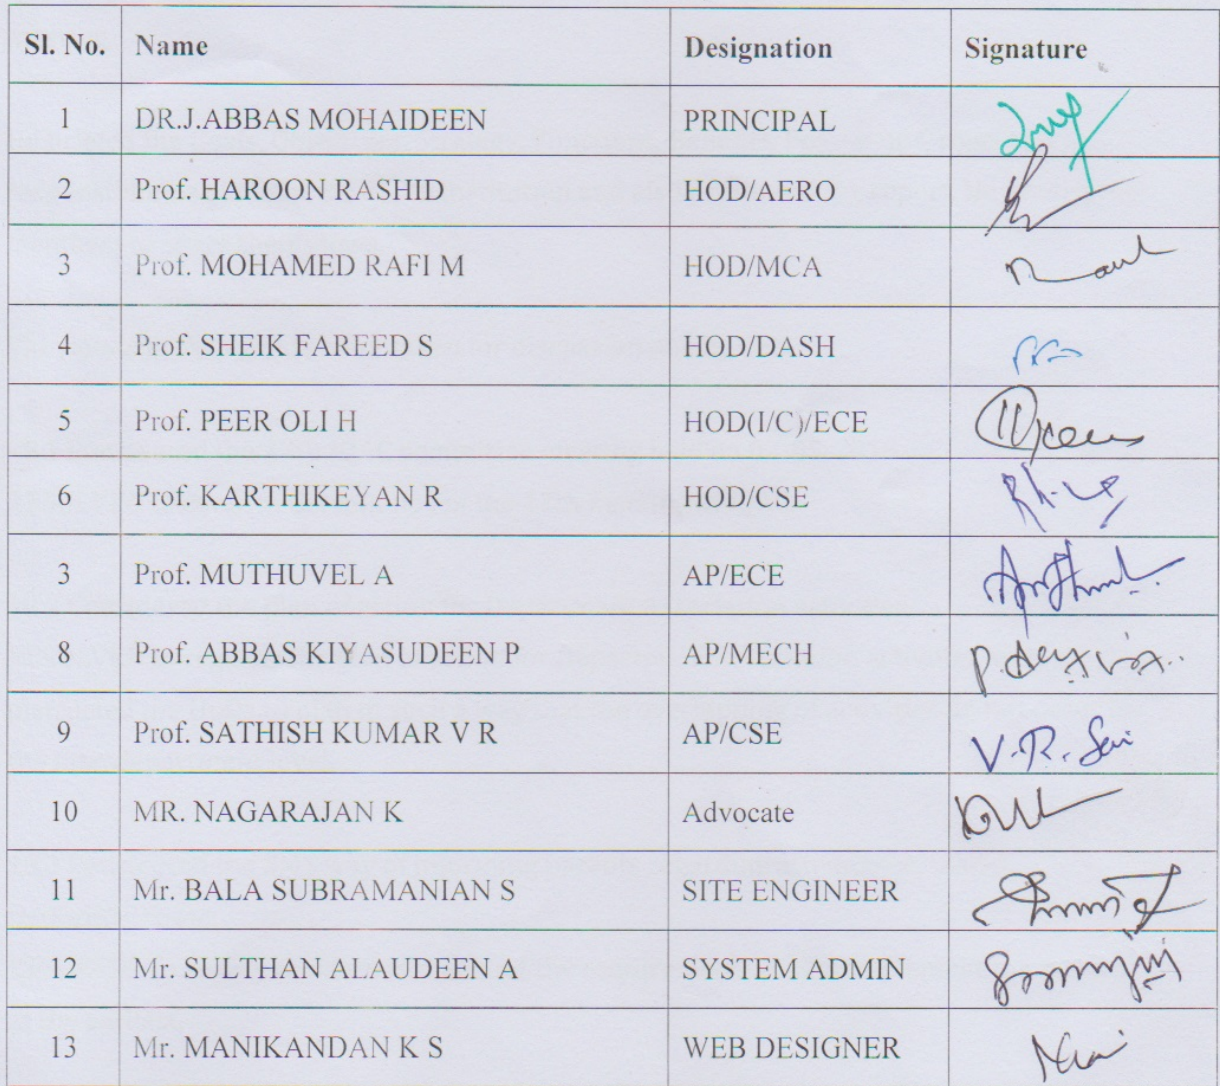 Sl. No. Name Designation Signature
1 DR.J.ABBAS MOHAIDEEN PRINCIPAL
2 Prof. HAROON RASHID HOD/AERO
3 Prof. MOHAMED RAFI M HOD/MCA
4 Prof. SHEIK FAREED S HOD/DASH
5 Prof. PEER OLI H HOD(I/C)/ECE
6 Prof. KARTHIKEYAN R HOD/CSE
3 Prof. MUTHUVEL A AP/ECE
8 Prof. ABBAS KIYASUDEEN P AP/MECH
9 Prof. SATHISH KUMAR V R AP/CSE
10 MR. NAGARAJAN K Advocate
11 Mr. BALA SUBRAMANIAN S SITE ENGINEER
12 Mr. SULTHAN ALAUDEEN A SYSTEM ADMIN
13 Mr. MANIKANDAN K S WEB DESIGNER